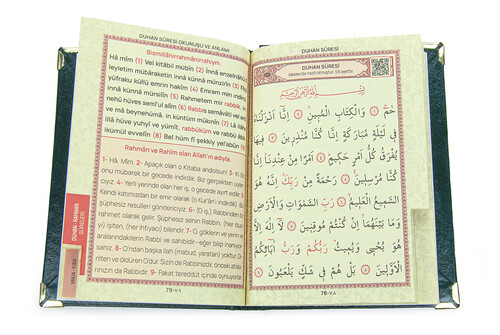 DUHAN SÛRESİ OKUNUŞU VE ANLAMI
Bismillâhirrahmânirrahîym.
Hâ mîm (1) Vel kitâbil mübîn (2) İnnâ enzelnâhü
leyletim mübâraketin innâ künnâ münzirîn (3)
yüfraku küllü emrin hakîm (4) Emram min indinâ
innâ künnâ mürsilîn (5) Rahmetem mir rabbik,
nehû hüves semî'ul alîm (6) Rabbis semâvâti vel
ve mâ beynehümâ. in küntüm mûkınîn (7) Lâ
illâ hüve yuhyî ve yümît. rabbüküm ve rabbü âbâ
ikümül evvelîn (8) Bel hüm fî şekkiy yel'abûn
Rahmân ve Rahîm olan Allah'ın adıyla.
1- Hâ, Mîm. 2- Apaçık olan o Kitaba andolsun! 3-
onu mübarek bir gecede indirdik. Biz gerçekten uyarı
cıyız. 4- Yerli yerinde olan her iş, o gecede ayırt edilir. 5-
Kendi katımızdan bir emir olarak (o Kur'ân'ı indirdik).
şüphesiz resulleri göndericiyiz. 6- (O iş,) Rabbinden bir
rahmet olarak gelir. Şüphesiz senin Rabbin, (her du-
yı) işiten, (her ihtiyacı) bilendir. 7- O, göklerin ve yerin ve
aralarındakilerin Rabbi ve sahibidir-eğer bilip inanıyor-
sanız. 8- O'ndan başka ilah (mabud, yaratan) yoktur.
rilten ve öldüren O'dur. Sizin de Rabbinizdir, önceki atala-
rınızın da Rabbidir. 9- Fakat tereddüt içinde oynuyorlar.
DUHAN - RAHMAN
SÛRELERİ
79-٧٩
DUHAN SÛRESİ
DUHAN SÛRESİ
Mekke'de nazil olmuştur. 59 ayettir.
بِسْمِ اللَّهِ الرَّحْمَنِ الرَّحِيمِ
حٰمٓ ١ وَالْكِتَابِ الْمُبٖينِ ٢ اِنَّٓا اَنْزَلْنَاهُ
فٖي لَيْلَةٍ مُبَارَكَةٍ اِنَّا كُنَّا مُنْذِرٖينَ ٣ فٖيهَا
يُفْرَقُ كُلُّ اَمْرٍ حَكٖيمٍ ٤ اَمْرًا مِنْ عِنْدِنَا اِنَّا
كُنَّا مُرْسِلٖينَ ٥ رَحْمَةً مِنْ رَبِّكَ اِنَّهُ هُوَ
السَّمٖيعُ الْعَلٖيمُ ٦ رَبِّ السَّمٰوَاتِ وَالْاَرْضِ
وَمَا بَيْنَهُمَا اِنْ كُنْتُمْ مُوقِنٖينَ ٧ لَٓا اِلٰهَ اِلَّا
هُوَ يُحْيٖ وَيُمٖيتُ رَبُّكُمْ وَرَبُّ اٰبَٓائِكُمُ
الْاَوَّلٖينَ ٨ بَلْ هُمْ فٖي شَكٍّ يَلْعَبُونَ ٩
78-٧٨